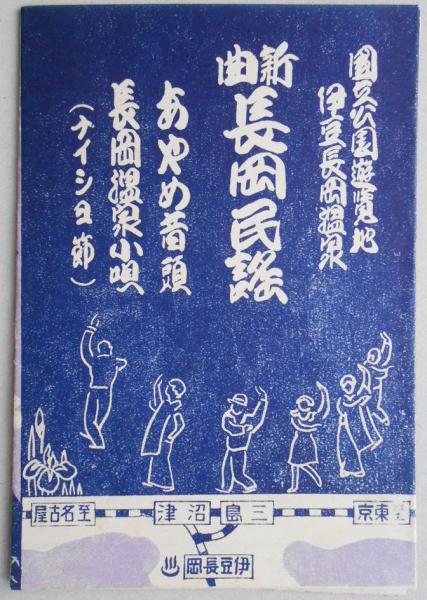 国立公園遊覧地
伊豆長岡温泉
新曲
長岡民謡
あやめ音頭
長岡温泉小唄
(ナイシヨ節)
至東京
三島
沼津
至名古屋
伊豆長岡